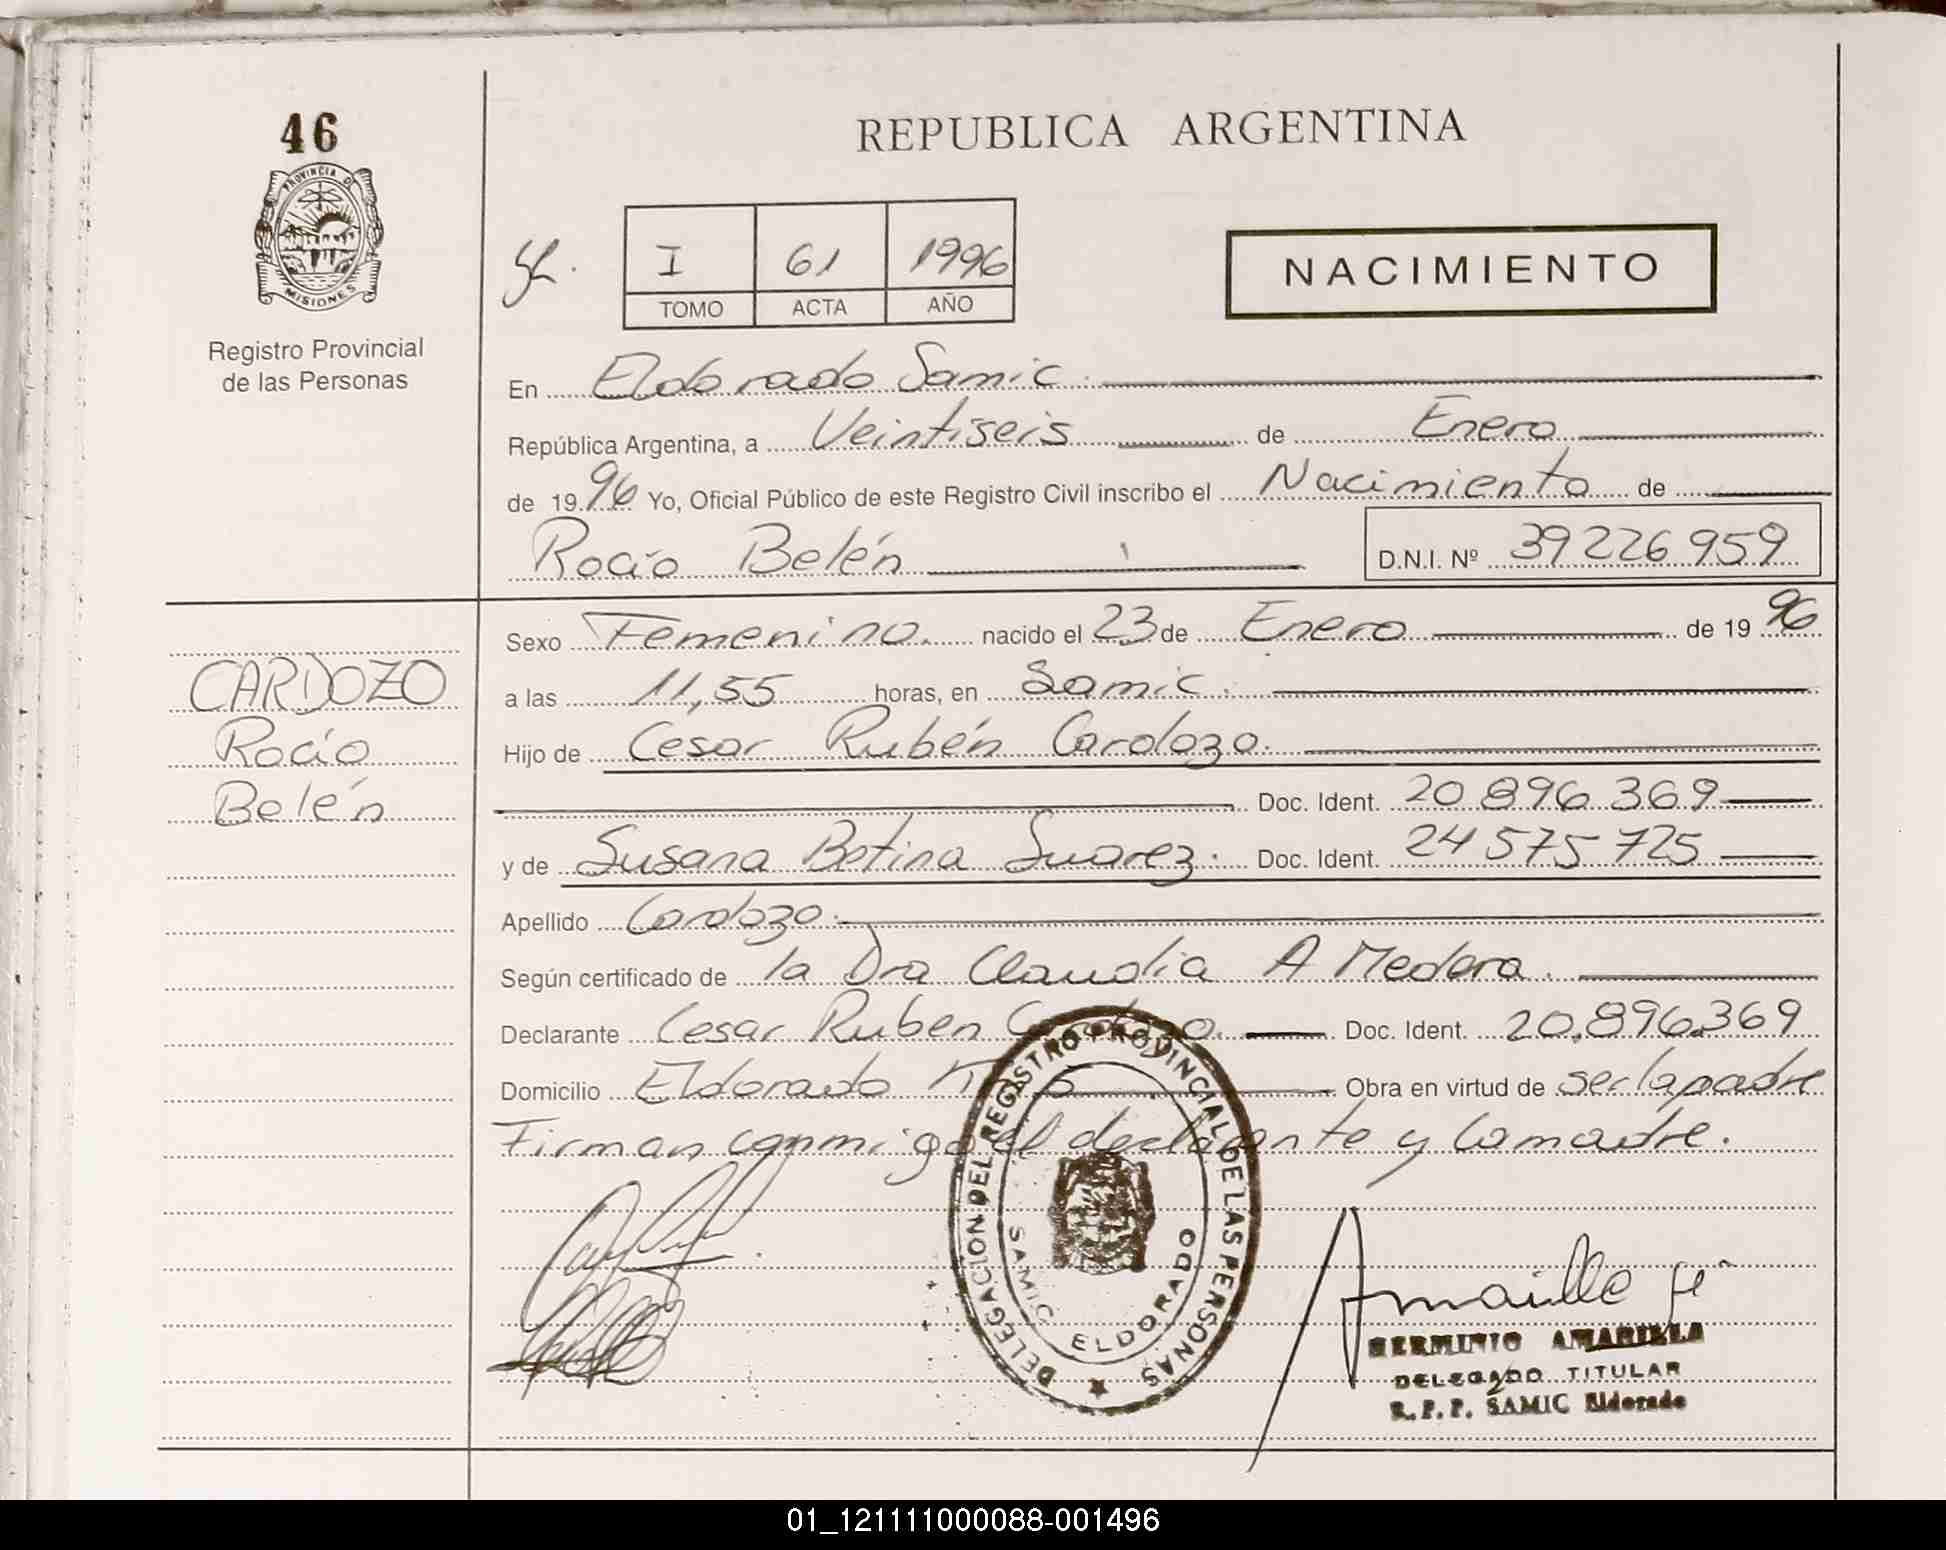 46
PROVINCIA DE
MISIONES
Registro Provincial
de las Personas
REPUBLICA ARGENTINA
I 61 1996
TOMO ACTA AÑO
NACIMIENTO
En Eldorado Samic.
República Argentina, a Veintiseis de Enero
de 1996 Yo, Oficial Público de este Registro Civil inscribo el Nacimiento de
Rocío Belén D.N.I. Nº 39226959
CARDOZO
Rocío
Belén
Sexo Femenino. nacido el 23 de Enero de 1996
a las 11,55 horas, en Samic.
Hijo de César Rubén Cardozo.
Doc. Ident. 20 896 369
y de Susana Betina Suarez. Doc. Ident. 24 575 725
Apellido Cardozo.
Según certificado de la Dra Claudia A Medera.
Declarante Cesar Ruben Cardozo. Doc. Ident. 20.896.369
Domicilio Eldorado Obra en virtud de ser la padre
Firman conmigo el declarante y la madre.
DELEGACION DEL REGISTRO PROVINCIAL DE LAS PERSONAS
SAMIC ELDORADO
HERMINIO AMARILLA
DELEGADO TITULAR
R.P.P. SAMIC Eldorado
01_121111000088-001496